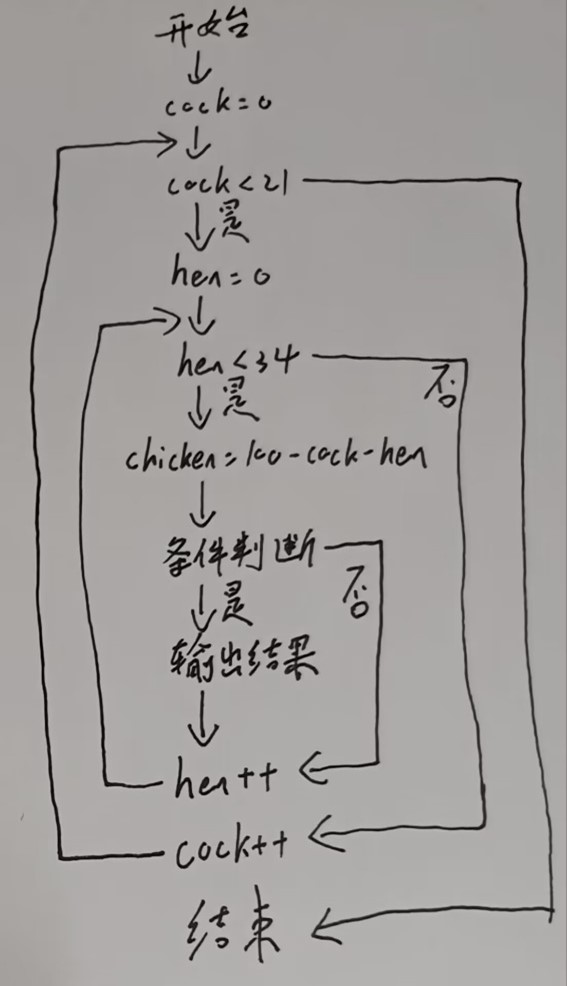 开始
cock=0
cock<21
是
hen=0
hen<34
否
是
chicken=100-cock-hen
条件判断
否
是
输出结果
hen++
cock++
结束